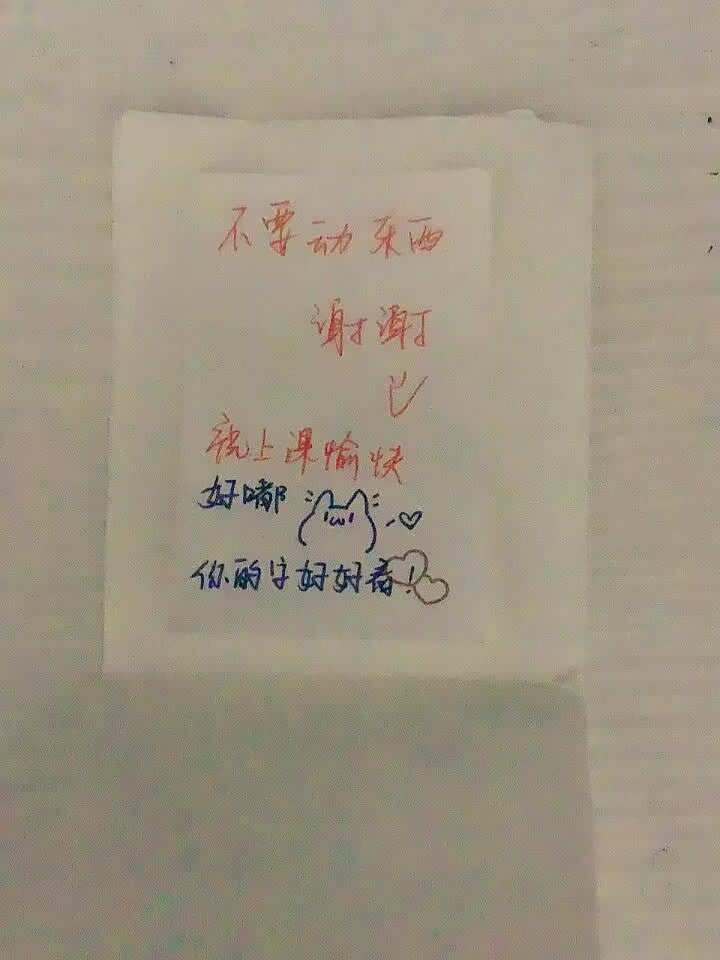 不要动东西
谢谢
祝上课愉快
好嘟
你的字好好看!